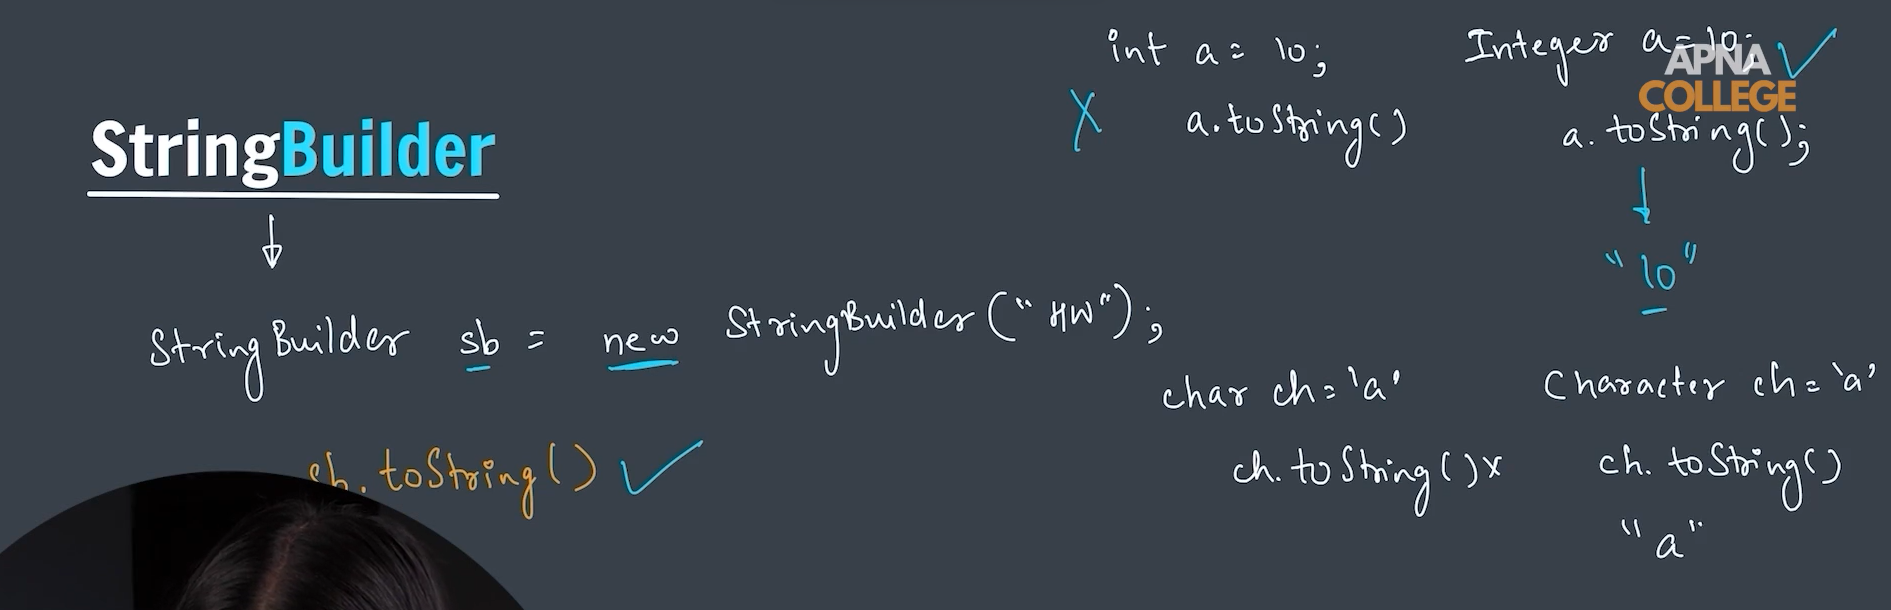 StringBuilder
StringBuilder sb = new StringBuilder("HW");
sb.toString()
int a = 10;
X a.toString()
Integer a=10;
APNA
COLLEGE
a.toString();
"10"
char ch='a'
ch.toString() x
Character ch='a'
ch.toString()
"a"